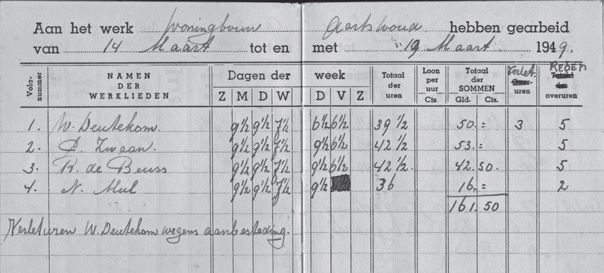 Aan het werk Woningbouw Aartswoud hebben gearbeid
van 14 Maart tot en met 19 Maart 1949.
Volg-nummer NAMEN DER WERKLIEDEN Dagen der week Totaal der uren Loon per uur Cts. Totaal der SOMMEN Gld. Cts. Verlet. Over-uren REDEN Totaal der overuren
Z M D W D V Z
1. W. Deutekom. 9½ 9½ 7½ 6½ 6½ 39½ 50.= 3 5
2. P. Zwaan. 9½ 9½ 7½ 9½ 6½ 42½ 53.= 5
3. K. de Beurs 9½ 9½ 7½ 9½ 6½ 42½ 42.50. 5
4. N. Mul 9½ 9½ 7½ 9½ 36 16.= 2
161.50
Verleturen W. Deutekom wegens aanbesteding.